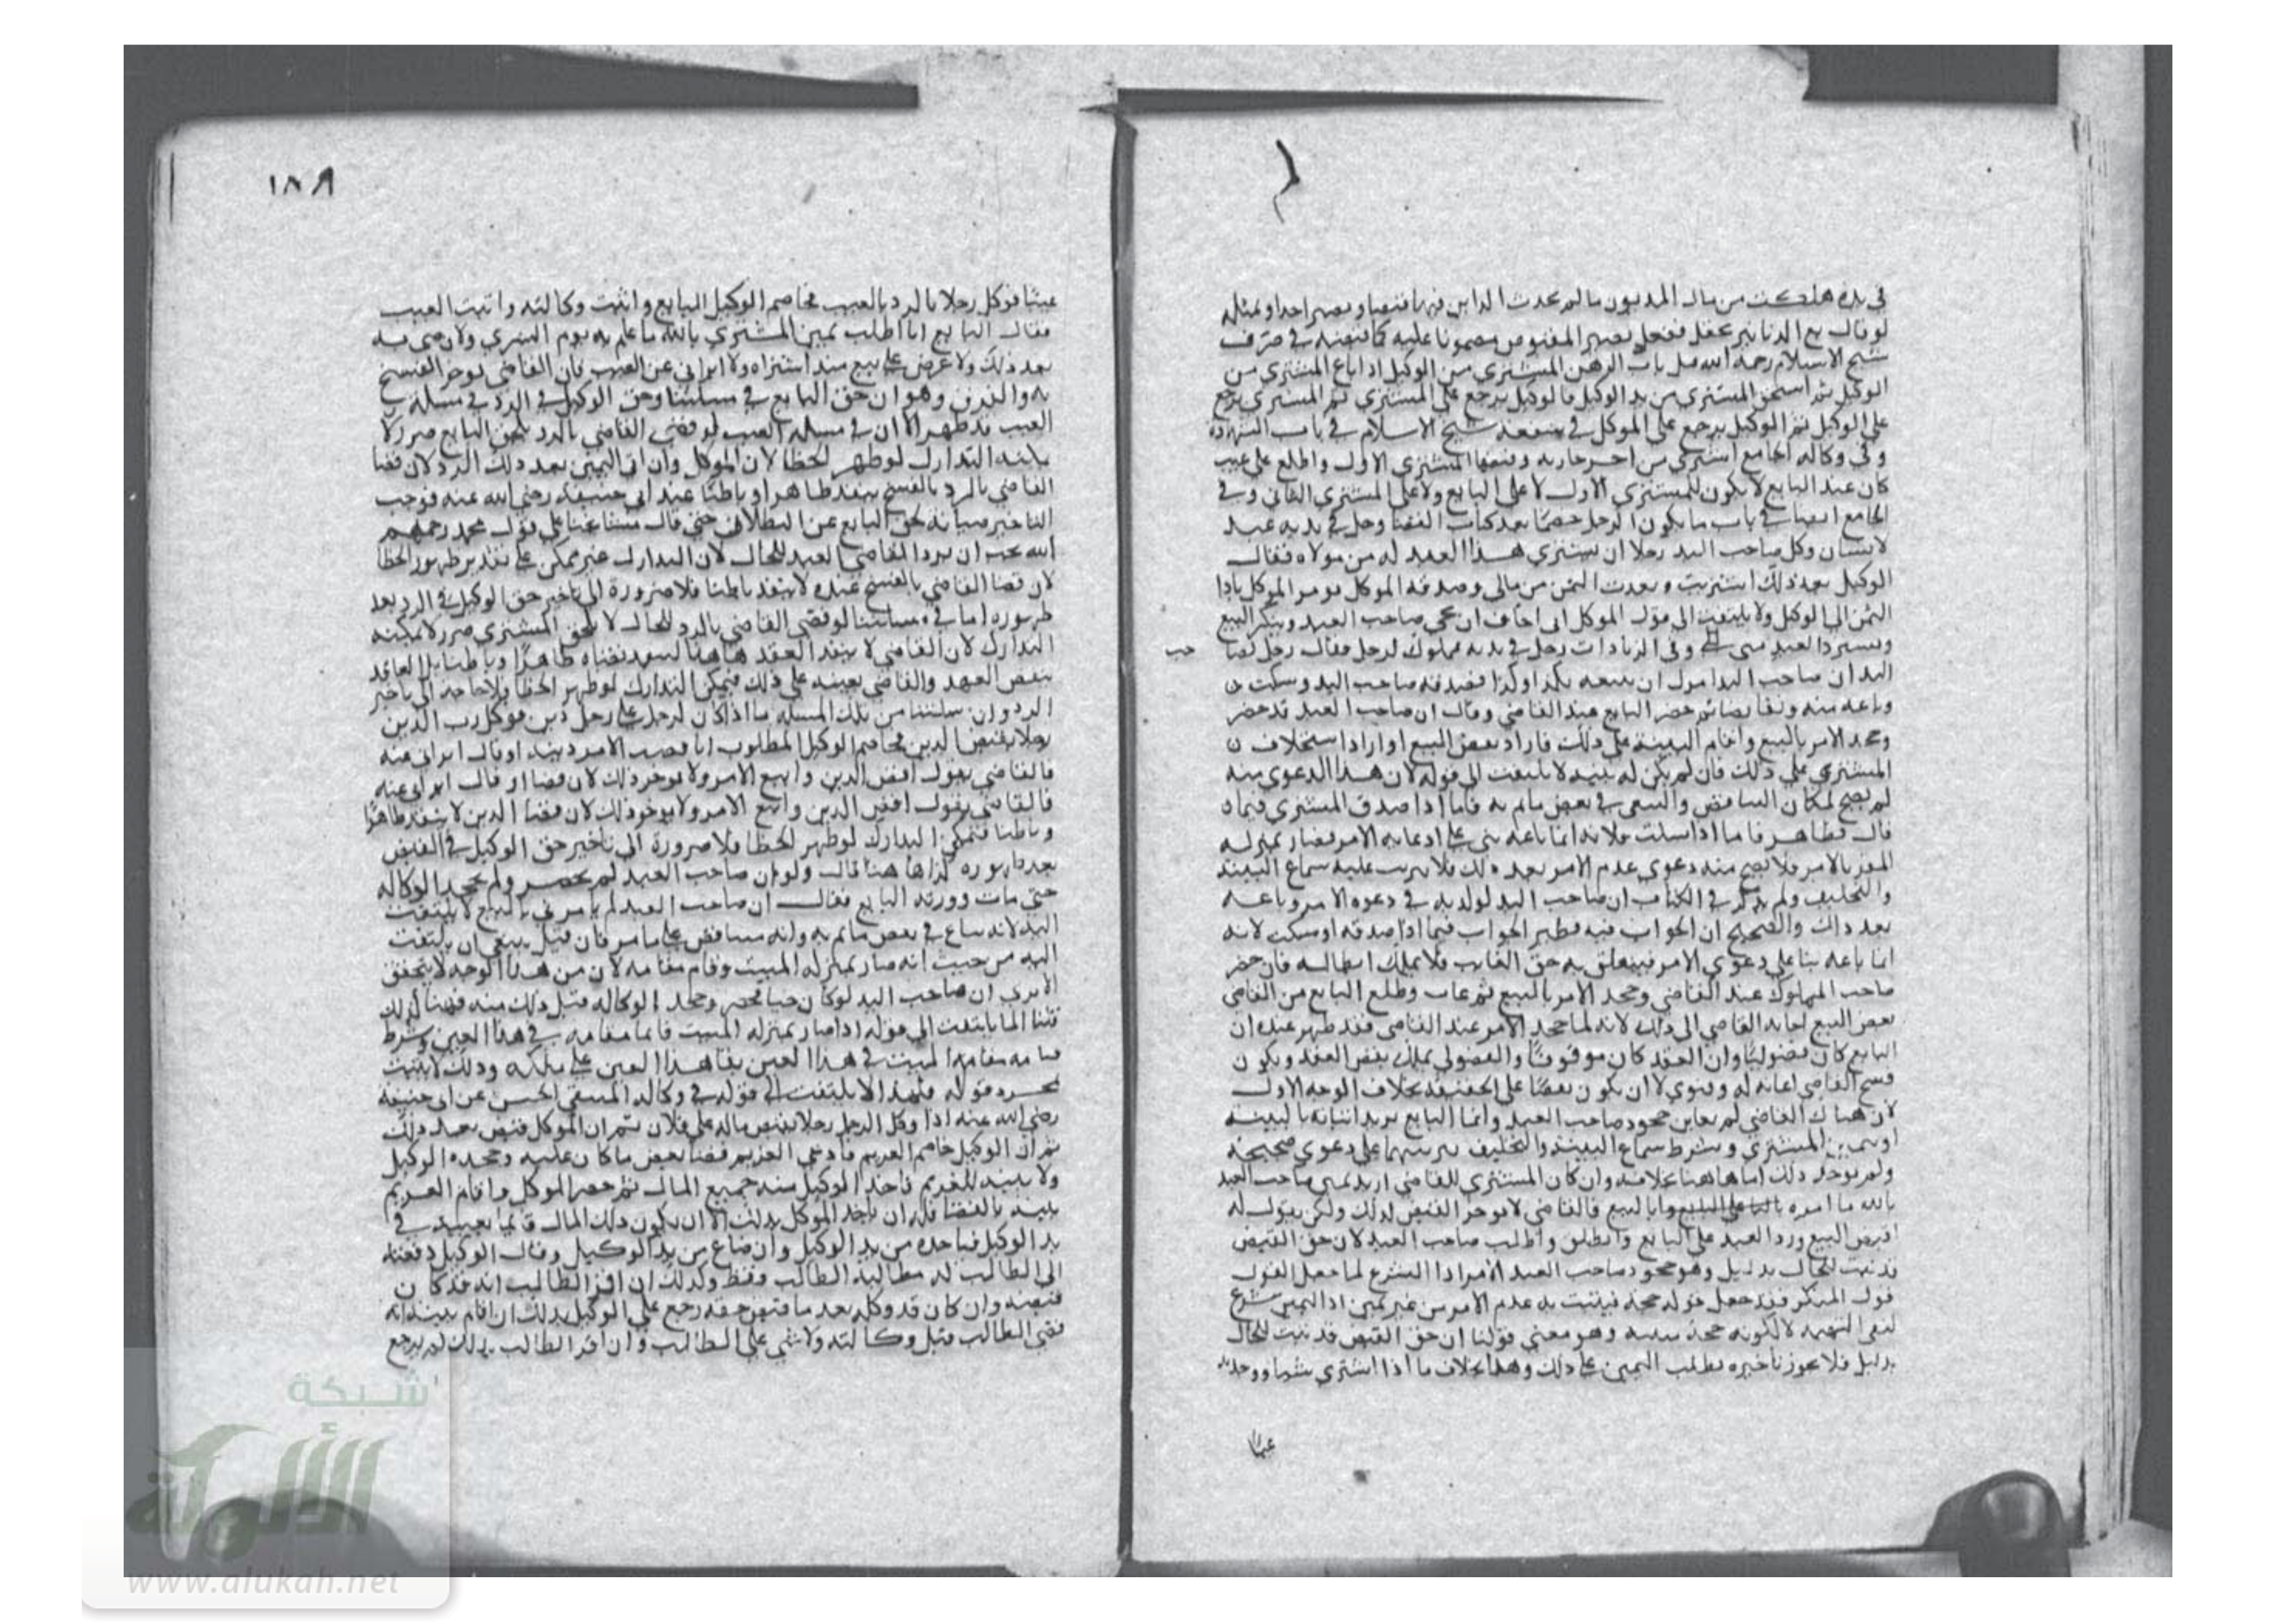 في يده هلكت من مال المديون ما لم يحدث الداين فيها قبضا ويصير احدا وبمثله
لو قال بع الدنانير ففعل يصير المقبوض مضمونا عليه في صرف
شيخ الاسلام رحمه الله باب الرهن المشتري من الوكيل اذا باع المشتري من
الوكيل ثم استحق المشتري من يد الوكيل فالوكيل يرجع على المشتري ثم المشتري يرجع
على الوكيل ثم الوكيل يرجع على الموكل في شيخ الاسلام في باب الشهادة
وفي وكالة الجامع اشترى من اخر جارية وقبضها المشتري الاول واطلع على عيب
كان عند البايع لا يكون للمشتري الاول لا على البايع ولا على المشتري الثاني وفي
الجامع ايضا في باب ما يكون الرجل خصما بعد كتاب القضا رجل في يديه عبد
لانسان وكل صاحب اليد رجلا ان يشتري هذا العبد له من مولاه فقال
الوكيل بعد ذلك اشتريت ونقدت الثمن من مالي وصدقه الموكل يومر الموكل باداء
الثمن الى الوكيل ولا يلتفت الى قول الموكل اني اخاف ان يجي صاحب العبد وينكر البيع
ويسترد العبد مني وفي الزيادات رجل في يديه مملوك لرجل فقال رجل لصا
حب
اليد ان صاحب اليد امرك ان تبيعه بكذا وكذا فصدقه صاحب اليد وسكت
وباعه منه وتقابضا ثم حضر البايع عند القاضي وقال ان صاحب العبد قد حضر
وجحد الامر بالبيع واقام البينة على ذلك فاراد نقض البيع او اراد استحلاف
المشتري على ذلك فان لم يكن له بينة لا يلتفت الى قوله لان هذا الدعوى منه
لم يصح لمكان التناقض والسعي في نقض ما تم به فاما اذا صدق المشتري فيما
قال فظاهر فاما اذا سكت فلانه انما باعه بنى على ادعايه الامر فصار بمنزلة
المقر بالامر فلا يصح منه دعوى عدم الامر بعد ذلك فلا يترتب عليه سماع البينة
والتحليف ولم يذكر في الكتاب ان صاحب اليد لو كذبه في دعوه الامر وباعه
بعد ذلك والصحيح ان الجواب فيه نظير الجواب فيما اذا صدقه او سكت لانه
انما باعه بنا على دعوى الامر فيتعلق به حق الغايب فلا يملك ابطاله فان حضر
صاحب المملوك عند القاضي وجحد الامر بالبيع ثم غاب وطلب البايع من القاضي
نقض البيع اجابه القاضي الى ذلك لانه لما جحد الامر عند القاضي فقد ظهر عنده ان
البايع كان فضوليا وان العقد كان موقوفا والفضولي يملك نقض العقد ويكون
فسخ القاضي اعانة له وفتوى لا ان يكون نقضا على الحقيقة بخلاف الوجه الاول
لان هناك القاضي لم يعاين جحود صاحب العبد وانما البايع يريد اثباته بالبينة
او بيمين المشتري وشرط سماع البينة والتحليف ترتبهما على دعوى صحيحة
ولم يوجد ذلك اما هاهنا بخلافه وان كان المشتري للقاضي اريد يمين صاحب العبد
بالله ما امره بالبيع فالقاضي لا يوخر القبض لذلك ولكن يقول له
انقض البيع ورد العبد على البايع وانطلق واطلب صاحب العبد لان حق القبض
قد ثبت للحال بدليل وهو جحود صاحب العبد الامر اذ الشرع لما جعل القول
قول المنكر فقد جعل قوله حجة فيثبت به عدم الامر من غير يمين اذ اليمين شرع
لنفي التهمة لا لكونه حجة بنفسه وهو معنى قولنا ان حق القبض قد ثبت للحال
بدليل فلا يجوز تاخيره بطلب اليمين على ذلك وهذا بخلاف ما اذا اشترى شيئا ووجد به
عيبا
١٨٨
عيبا فوكل رجلا بالرد بالعيب فخاصم الوكيل البايع واثبت وكالته واثبت العيب
فقال البايع انا اطلب يمين المشتري بالله ما علم به يوم الشرى ولا رضى به
بعد ذلك ولا عرض على بيع منذ اشتراه ولا ابراني عن العيب فان القاضي يوخر الفسخ
به والفرق وهو ان حق البايع في مسئلتنا وحق الوكيل في الرد في مسئلة
العيب قد ظهر الا ان في مسئلة العيب لو قضى القاضي بالرد يلحق البايع ضرر لا
يمكنه التدارك لو ظهر الخطا لان الموكل وان ابى اليمين بعد ذلك الرد لان قضا
القاضي بالرد بالفسخ ينفذ ظاهرا وباطنا عند ابي حنيفة رضي الله عنه فوجب
التاخير صيانة لحق البايع عن البطلان حتى قال مشايخنا على قول محمد رحمهم
الله يجب ان يرد القاضي العبد للحال لان التدارك غير ممكن على تقدير ظهور الخطا
لان قضا القاضي بالفسخ عنده لا ينفذ باطنا فلا ضرورة الى تاخير حق الوكيل في الرد بعد
ظهوره اما في مسئلتنا لو قضى القاضي بالرد للحال لا يلحق المشتري ضرر لا يمكنه
التدارك لان القاضي لا ينقض العقد هاهنا لينفذ قضاه ظاهرا وباطنا بل العاقد
ينقض العهد والقاضي يعينه على ذلك فيمكن التدارك لو ظهر الخطا ولا حاجة الى تاخير
الرد وزان مسئلتنا من تلك المسئلة ما اذا كان لرجل على رجل دين فوكل رب الدين
رجلا بقبض الدين فخاصم الوكيل المطلوب انا الامر بينه او قال ابراني عنه
فالقاضي يقول اقض الدين واتبع الامر ولا يوخر ذلك لان قضا او قال ابراني عنه
فالقاضي يقول اقض الدين واتبع الامر ولا يوخر ذلك لان قضا الدين لا ينفذ ظاهرا
وباطنا فيمكن التدارك لو ظهر الخطا فلا ضرورة الى تاخير حق الوكيل في القبض
بعد ظهوره كذا هاهنا قال ولو ان صاحب العبد لم يحضر ولم يجحد الوكالة
حتى مات وورثه البايع فقال ان صاحب العبد لم يامرني بالبيع لا يلتفت
اليه لانه ساع في نقض ما تم به وانه مناقض على ما مر فان قيل ينبغي ان يلتفت
اليه من حيث انه صار بمنزلة الميت وقام مقامه لان من هذا الوجه لا يتحقق
الا يرى ان صاحب اليد لو كان حيا فحضر وجحد الوكالة قبل ذلك منه فهنا كذلك
قلنا انما يلتفت الى قوله اذا صار بمنزلة الميت قايما مقامه في هذا العين وشرط
قيامه مقام الميت في هذا العين بقا هذا العين على ملكه وذلك لا يثبت
بمجرد قوله فلهذا لا يلتفت الى قوله في وكالة المنتقى الحسن عن ابي حنيفة
رضي الله عنه اذا وكل الرجل رجلا بقبض ماله على فلان ثم ان الموكل قبض بعد ذلك
ثم ان الوكيل خاصم الغريم فادعى الغريم قضا بعض ما كان عليه وجحده الوكيل
ولا بينة للغريم فاخذ الوكيل منه جميع المال ثم حضر الموكل واقام الغريم
بينة بالقضا فله ان ياخذ الموكل بذلك الا ان يكون ذلك المال قايما بعينه في
يد الوكيل فياخذه من يد الوكيل وان ضاع من يد الوكيل وقال الوكيل دفعته
الى الطالب له مطالبة الطالب فقط وكذلك ان اقر الطالب انه قد كان
قبضه وان كان قد وكله بعد ما قبض حقه رجع على الوكيل بذلك ان اقام بينة انه
قضى الطالب قبل وكالته ولا شي على الطالب وان اقر الطالب بذلك لم يرجع
شبكة
الألوكة
www.alukah.net